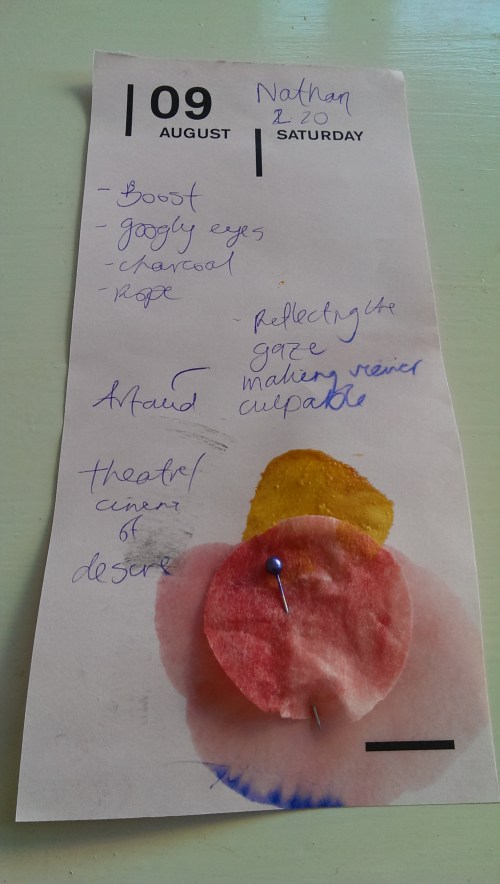 09
AUGUST
SATURDAY
Nathan
20
- Boost
- googly eyes
- charcoal
- Rope
- Reflecting the
gaze
making viewer
culpable
Artaud
theatre/
cinema
of
desire